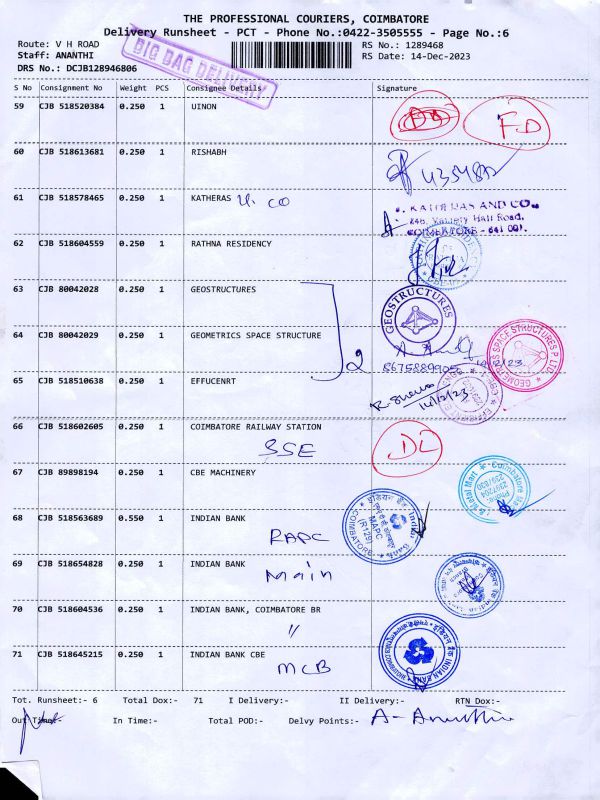 THE PROFESSIONAL COURIERS, COIMBATORE
Delivery Runsheet - PCT - Phone No.:0422-3505555 - Page No.:6
Route: V H ROAD
RS No.: 1289468
Staff: ANANTHI
RS Date: 14-Dec-2023
DRS No.: DCJB128946806
BIG BAG DELIVERY
S No Consignment No Weight PCS Consignee Details Signature
59 CJB 518520384 0.250 1 UINON
F.D
60 CJB 518613681 0.250 1 RISHABH
61 CJB 518578465 0.250 1 KATHERAS
& CO
KATHERAS AND CO.
Hall Road,
COIMBATORE - 641 001.
62 CJB 518604559 0.250 1 RATHNA RESIDENCY
63 CJB 80042028 0.250 1 GEOSTRUCTURES
2
GEOSTRUCTURES
64 CJB 80042029 0.250 1 GEOMETRICS SPACE STRUCTURE
GEOMETRICS SPACE STRUCTURES P LTD.
65 CJB 518510638 0.250 1 EFFUCENRT
14/12/23
66 CJB 518602605 0.250 1 COIMBATORE RAILWAY STATION
SSE
DL
67 CJB 89898194 0.250 1 CBE MACHINERY
68 CJB 518563689 0.550 1 INDIAN BANK
RAPC
Indian Bank
MAPC
(R129)
COIMBATORE
69 CJB 518654828 0.250 1 INDIAN BANK
Main
70 CJB 518604536 0.250 1 INDIAN BANK, COIMBATORE BR
"
71 CJB 518645215 0.250 1 INDIAN BANK CBE
MCB
INDIAN BANK
Tot. Runsheet:- 6 Total Dox:- 71 I Delivery:- II Delivery:- RTN Dox:-
Out Time:- In Time:- Total POD:- Delvy Points:-